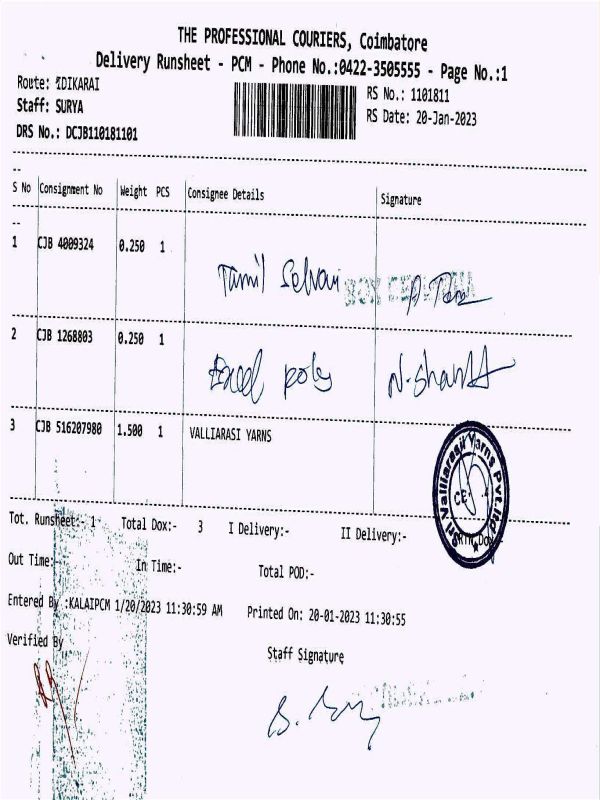 THE PROFESSIONAL COURIERS, Coimbatore
Delivery Runsheet - PCM - Phone No.:0422-3505555 - Page No.:1
Route: IDIKARAI
RS No.: 1101811
Staff: SURYA
RS Date: 20-Jan-2023
DRS No.: DCJB110181101
S No Consignment No Weight PCS Consignee Details Signature
1 CJB 4009324 0.250 1 Tamil Selvan
2 CJB 1268803 0.250 1 Excel poly N.Shanth
3 CJB 516207980 1.500 1 VALLIARASI YARNS
Sri Valliarasi Yarns Pvt Ltd
Tot. Runsheet:- 1 Total Dox:- 3 I Delivery:- II Delivery:-
Out Time:- In Time:- Total POD:-
Entered By :KALAIPCM 1/20/2023 11:30:59 AM Printed On: 20-01-2023 11:30:55
Verified By
Staff Signature